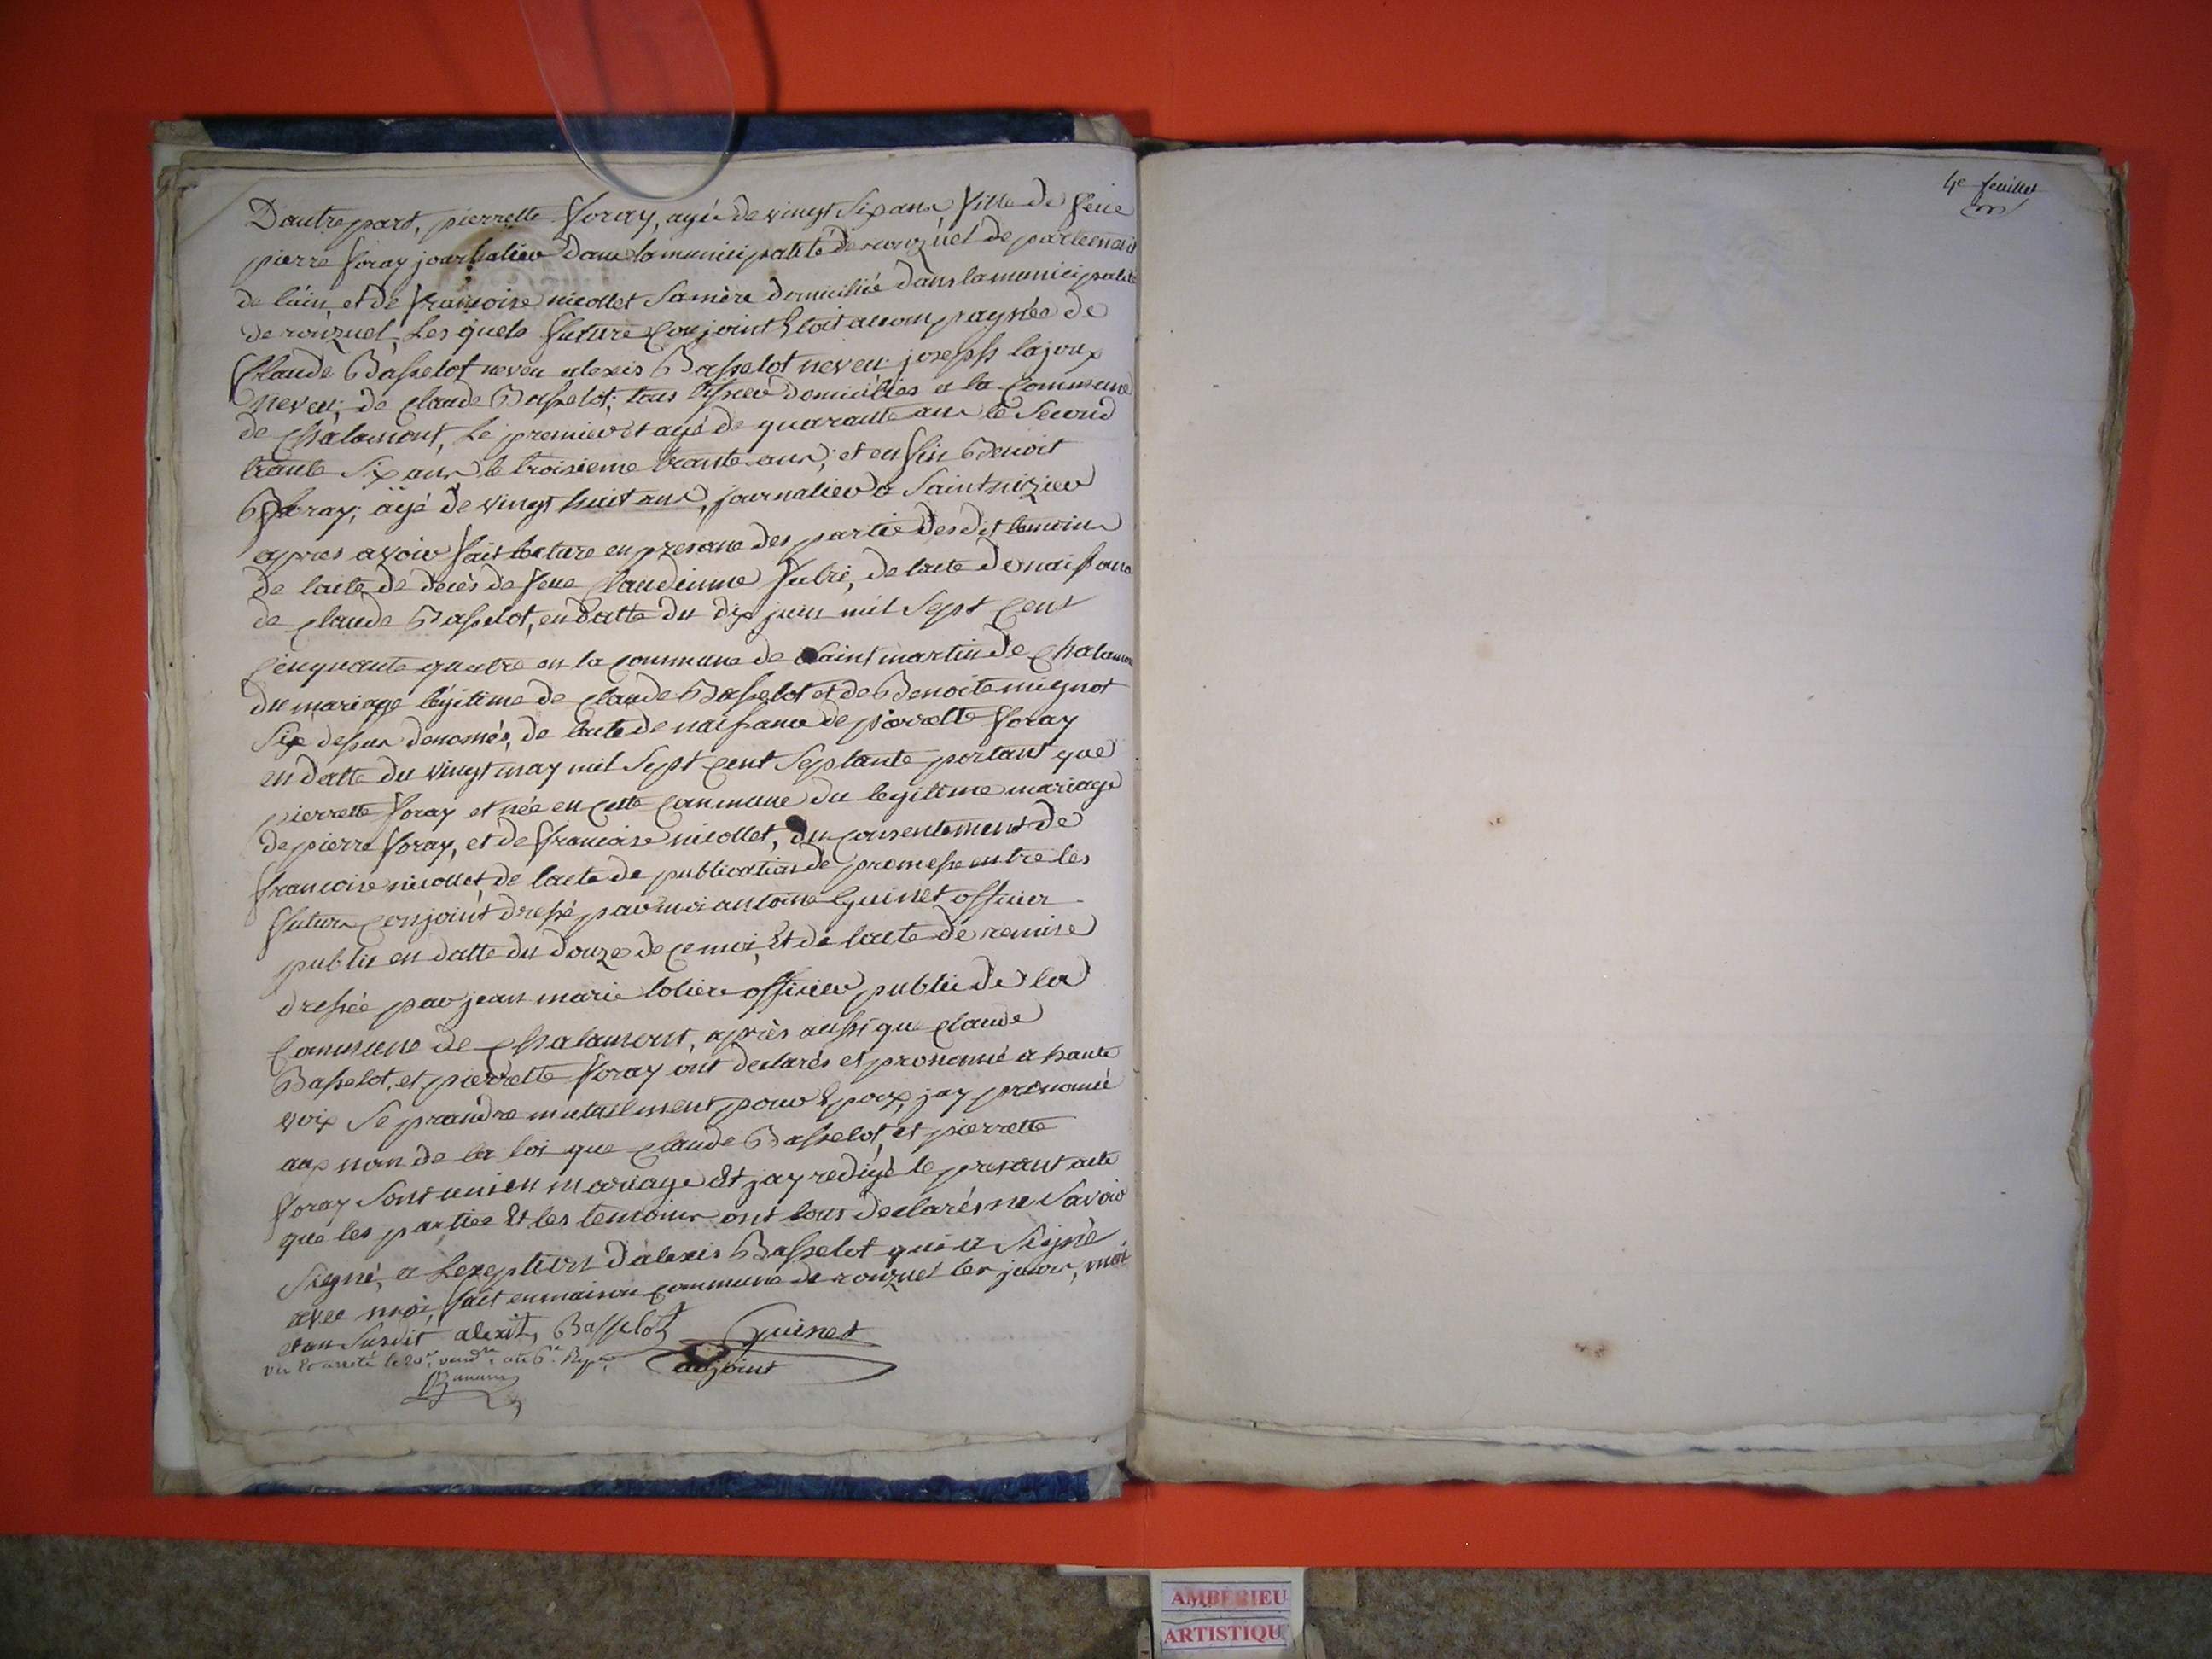 Dautre part, pierrette foray, agée de vingt six ans fille de feue
pierre foray journalier dans la municipalité de ronzuel departement
de lain, et de francoise nicollet sa mère domiciliée dans la municipalité
de ronzuel, Lesquels future conjoint Etoit accompagnée de
Claude Basselot neveu alexis Basselot neveu joseph lajoux
neveu; de claude Basselot; tous domiciliés a la commune
de Chalamont, Le premier et agé de quarante ans le Second
trante Six ans le troisieme trante ans; et enfin Benoit
foray; agé de vingt huit ans, journalier a Saint nizier
apres avoir fait lecture en presance des partie des dit temoins
de lacte de deces de feue Claudinne fabri, de lacte de naissance
de claude Basselot, en datte du dix juin mil Sept cent
cinquante quatre en la commune de Saint martin de Chalamont
du mariage légitime de claude Basselot et de Benoite mignot
Six dessus denomés, de lacte de naissance de pierrette foray
en datte du vingt may mil Sept cent Septante portant que
pierrette foray et née en cette commune du legitime mariage
de pierre foray, et de francoise nicollet, du consentement de
francoise nicollet, de lacte de publication de promesse entre les
futurs conjoint dressé par moi antoine Guinet officier
public en datte du douze de ce moi, Et de lacte de remise
dressée par jean marie officier public de la
Commune de Chalamont, après aussi que claude
Basselot, et pierrette foray ont declarés et prononcé a haute
voix Se prandre mutuelment pour Epoux, jay prononcé
aux nom de la loi que claude Basselot, et pierrette
foray Sont uni en mariage Et jay redigé le presant acte
que les partiee Et les temoins ont tous declarés ne Savoir
Signé, a Lexeption dalexis Basselot qui a Signé
avec moi, fait en maison commune de ronzuel les jours, moi
et an Susdit alexit, Basselot Guinet
vu Et arreté le 20e. vendre. an 6e. Rep.
adjoint
4e feuillet